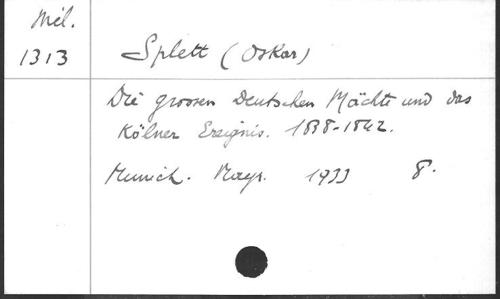 Mél.
1313
Splett (Oskar)
Die grossen Deutschen Mächte und das
Kölner Ereignis. 1838-1842.
Munich. Mayr. 1933 8.